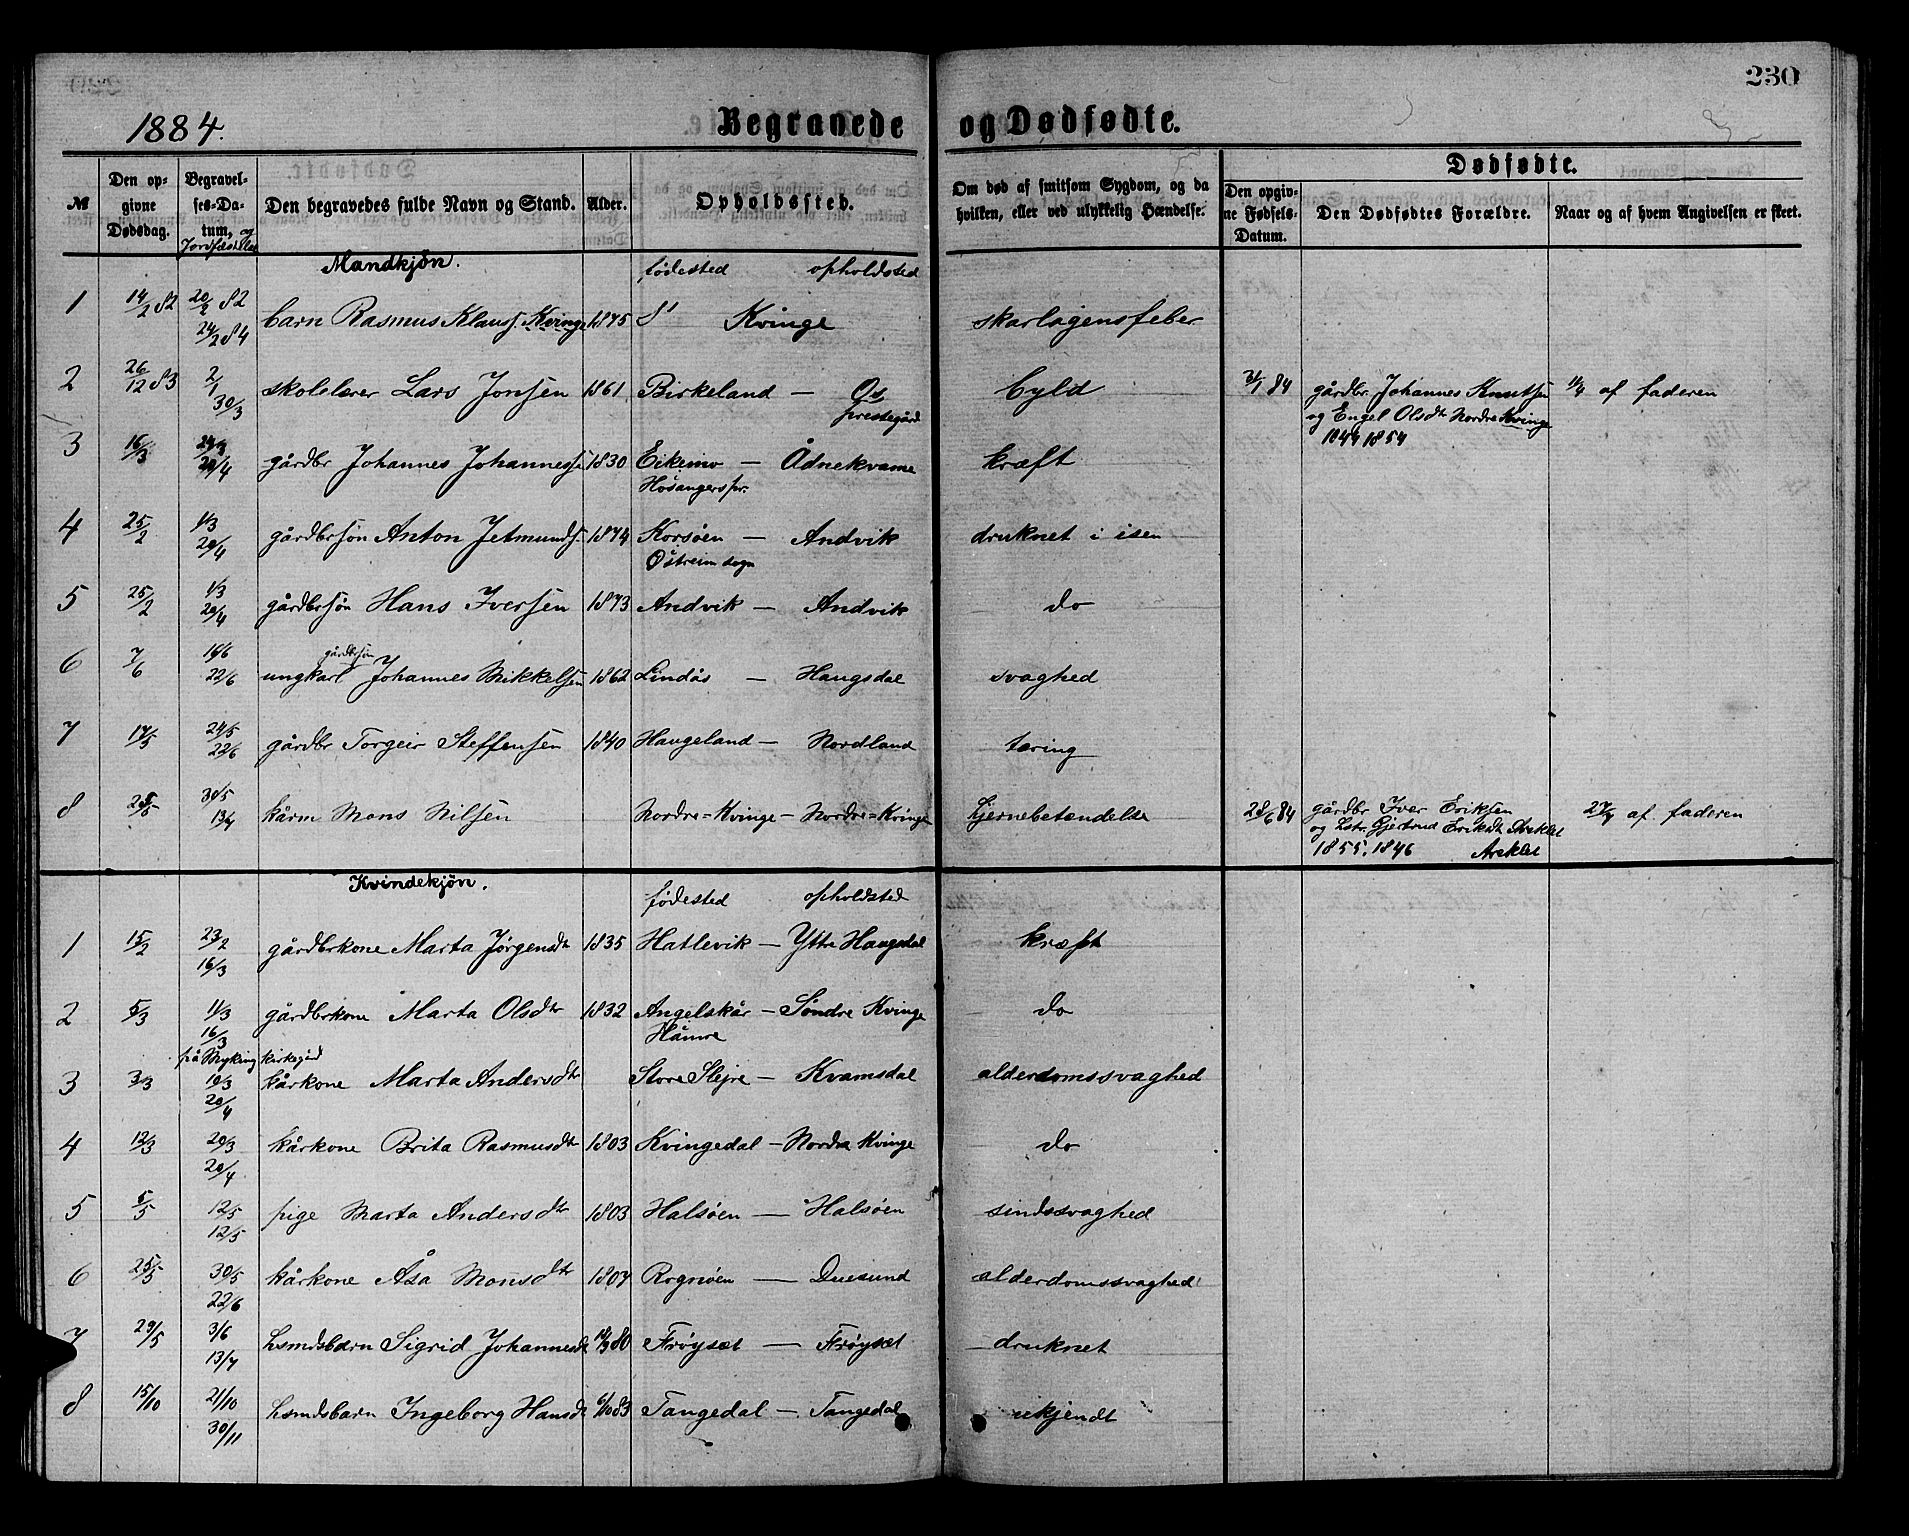 230
1884.
Begravede og Dødfødte.
№ | Den opgivne Dødsdag. | Begravelses-Datum, og Jordfæstelse | Den begravedes fulde Navn og Stand. | Alder. | Opholdssted. | Om død af smitsom Sygdom, og da hvilken, eller ved ulykkelig Hændelse. | Dødfødte. Den opgivne Fødsels-Datum. | Den Dødfødtes Forældre. | Naar og af hvem Angivelsen er skeet.
Mandkjøn. fødested opholdsted
1 14/2 82 20/2 82 24/2 84 barn Rasmus Klauss. Kvinge 1875 S' Kvinge skarlagensfeber
2 26/12 83 2/1 30/3 skolelærer Lars Jonsen 1861 Birkeland — Os prestegård byld 31/1 84 gårdbr Johannes Knutsen og Engel Olsdtr Nordre Kvinge 1844 1854 af faderen
3 16/3 20/4 gårdbr Johannes Johannessen 1830 Eikemo — Ådnekvame Hosangerspr. kræft
4 25/2 1/3 20/4 gårdbrsøn Anton Jetmunds. 1874 Korsøen — Andvik Østreim sogn druknet i isen
5 25/2 1/3 20/4 gårdbrsøn Hans Iversen 1873 Andvik — Andvik do
6 7/6 14/6 22/6 ungkarl gårdbrsøn Johannes Mikkelsen 1862 Lindås — Haugsdal svaghed
7 17/5 24/5 22/6 gårdbr Torgeir Steffensen 1840 Haugeland — Nordland tæring
8 30/5 13/7 kårm Mons Nilsen Nordre=Kvinge — Nordre=Kvinge hjernebetændelse 28/6 84 gårdbr Iver Eriksen og hstr. Gjertrud Eriksdt Areklet 1855, 1846 Areklet 27/7 af faderen
Kvindekjøn. fødested opholdsted
1 15/2 23/2 16/3 gårdbrkone Marta Jørgensdtr 1835 Hatlevik — Yttre Haugsdal kræft
2 5/3 11/3 16/3 gårdbrkone Marta Olsdtr 1832 Angelskår — Søndre Kvinge Hamre do
på Myking kirkegård
3 3/3 10/3 20/4 kårkone Marta Andersdtr Store Slejre — Kvamsdal alderdomssvaghed
4 12/3 20/3 20/4 kårkone Brita Rasmusdtr 1803 Kvingedal — Nordre Kvinge do
5 5/5 12/5 12/5 pige Marta Andersdtr 1803 Halsøen — Halsøen sindssvaghed
6 25/5 30/5 22/6 kårkone Åsa Monsdtr 1807 Rognøen — Duesund alderdomssvaghed
7 29/5 3/6 13/7 hsmdsbarn Sigrid Johannesdt 80 Frøyset — Frøyset druknet
8 15/10 21/10 30/11 hsmdsbarn Ingeborg Hansdt 6/10 83 Tangedal — Tangedal ukjendt